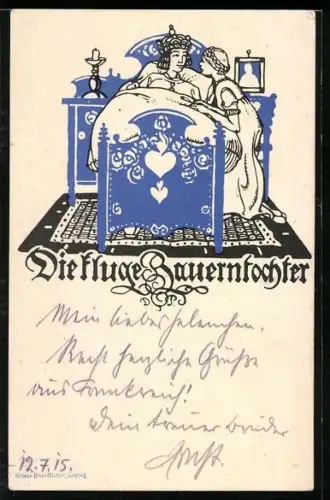 Die kluge Bauerntochter
Mein liebes Helenchen,
Recht herzliche Grüße
aus Frankreich!
Dein treuer Bruder
Ernst.
12.7.15.